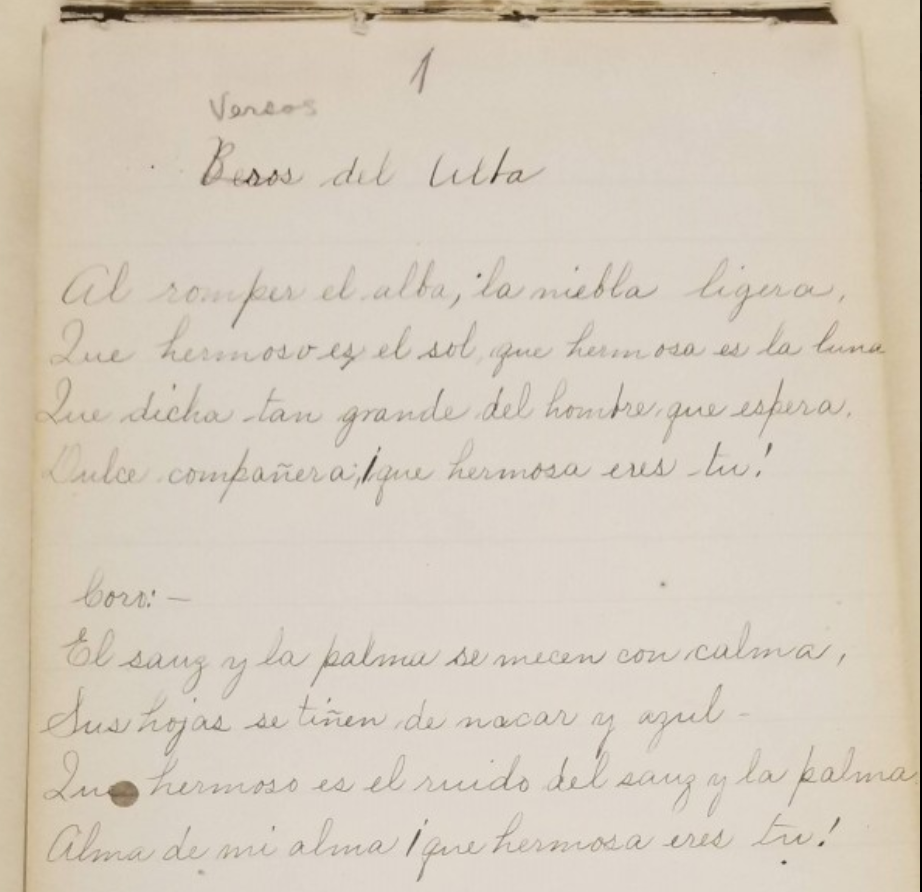 1
Versos
Besos del Alba
Al romper el alba, la niebla ligera,
Que hermoso es el sol, que hermosa es la luna
Que dicha tan grande del hombre que espera.
Dulce compañera, ¡que hermosa eres tu!
Coro:—
El sauz y la palma se mecen con calma,
Sus hojas se tiñen de nacar y azul -
Que hermoso es el ruido del sauz y la palma
Alma de mi alma ¡que hermosa eres tu!